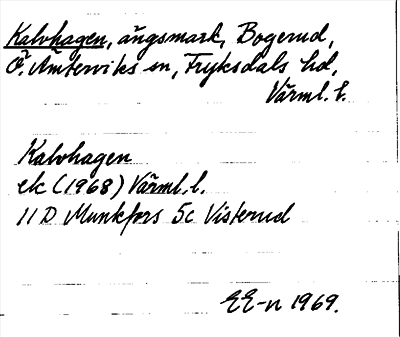 Kalvhagen, ängsmark, Bogerud,
Ö. Ämterviks sn, Fryksdals hd,
Värml. l.
Kalvhagen
ek (1968) Värml. l.
11 D Munkfors 5c Visterud
EE-n 1969.